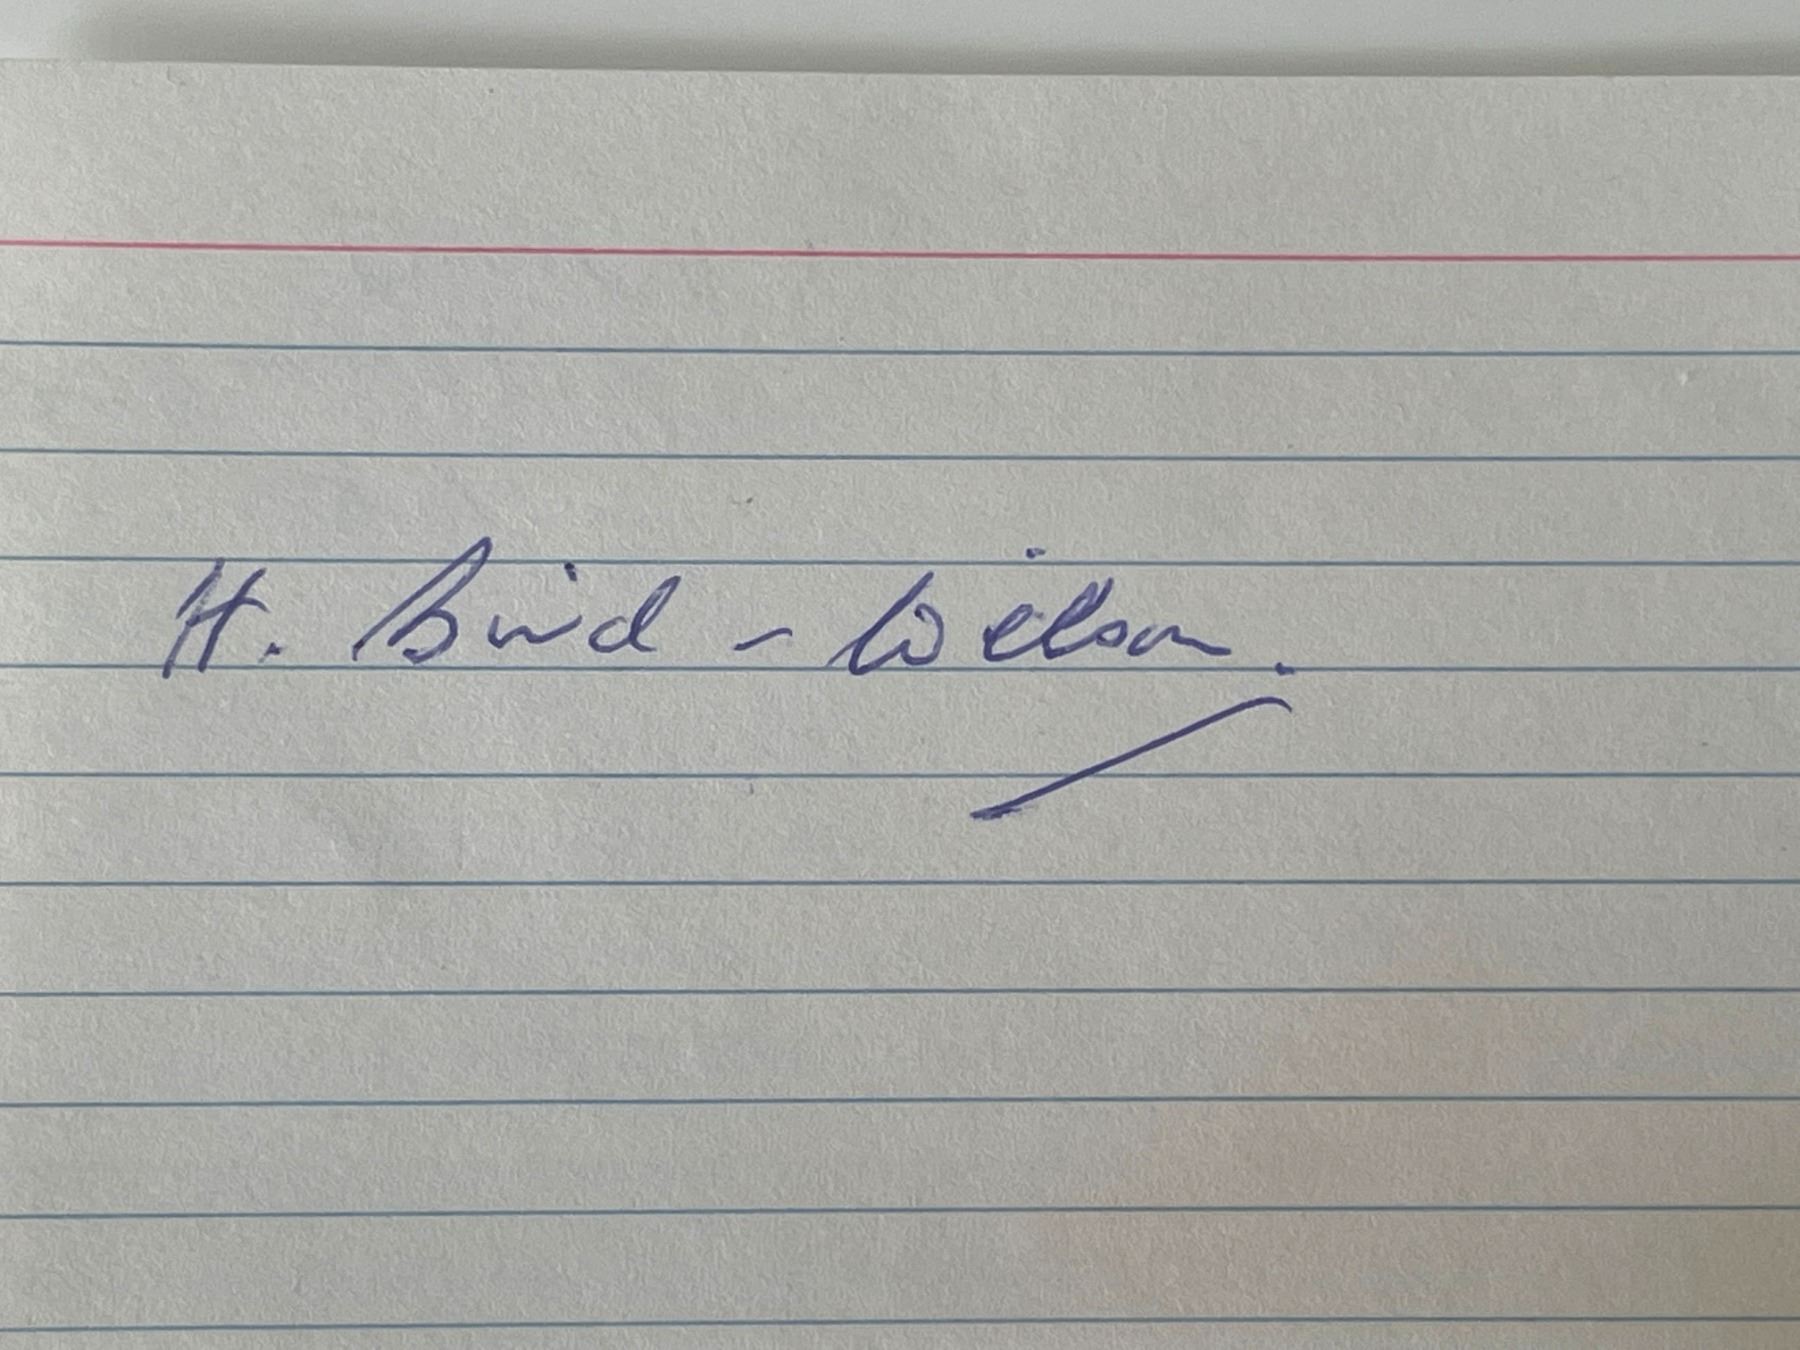 H. Bird - Wilson.